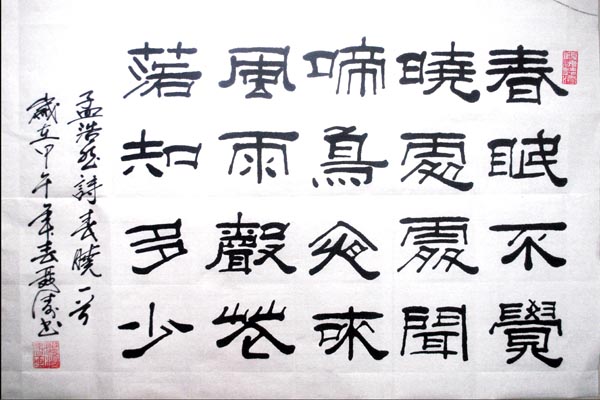 春眠不覺
曉處處聞
啼鳥夜來
風雨聲花
落知多少
孟浩然詩春曉一首
歲在甲午年春